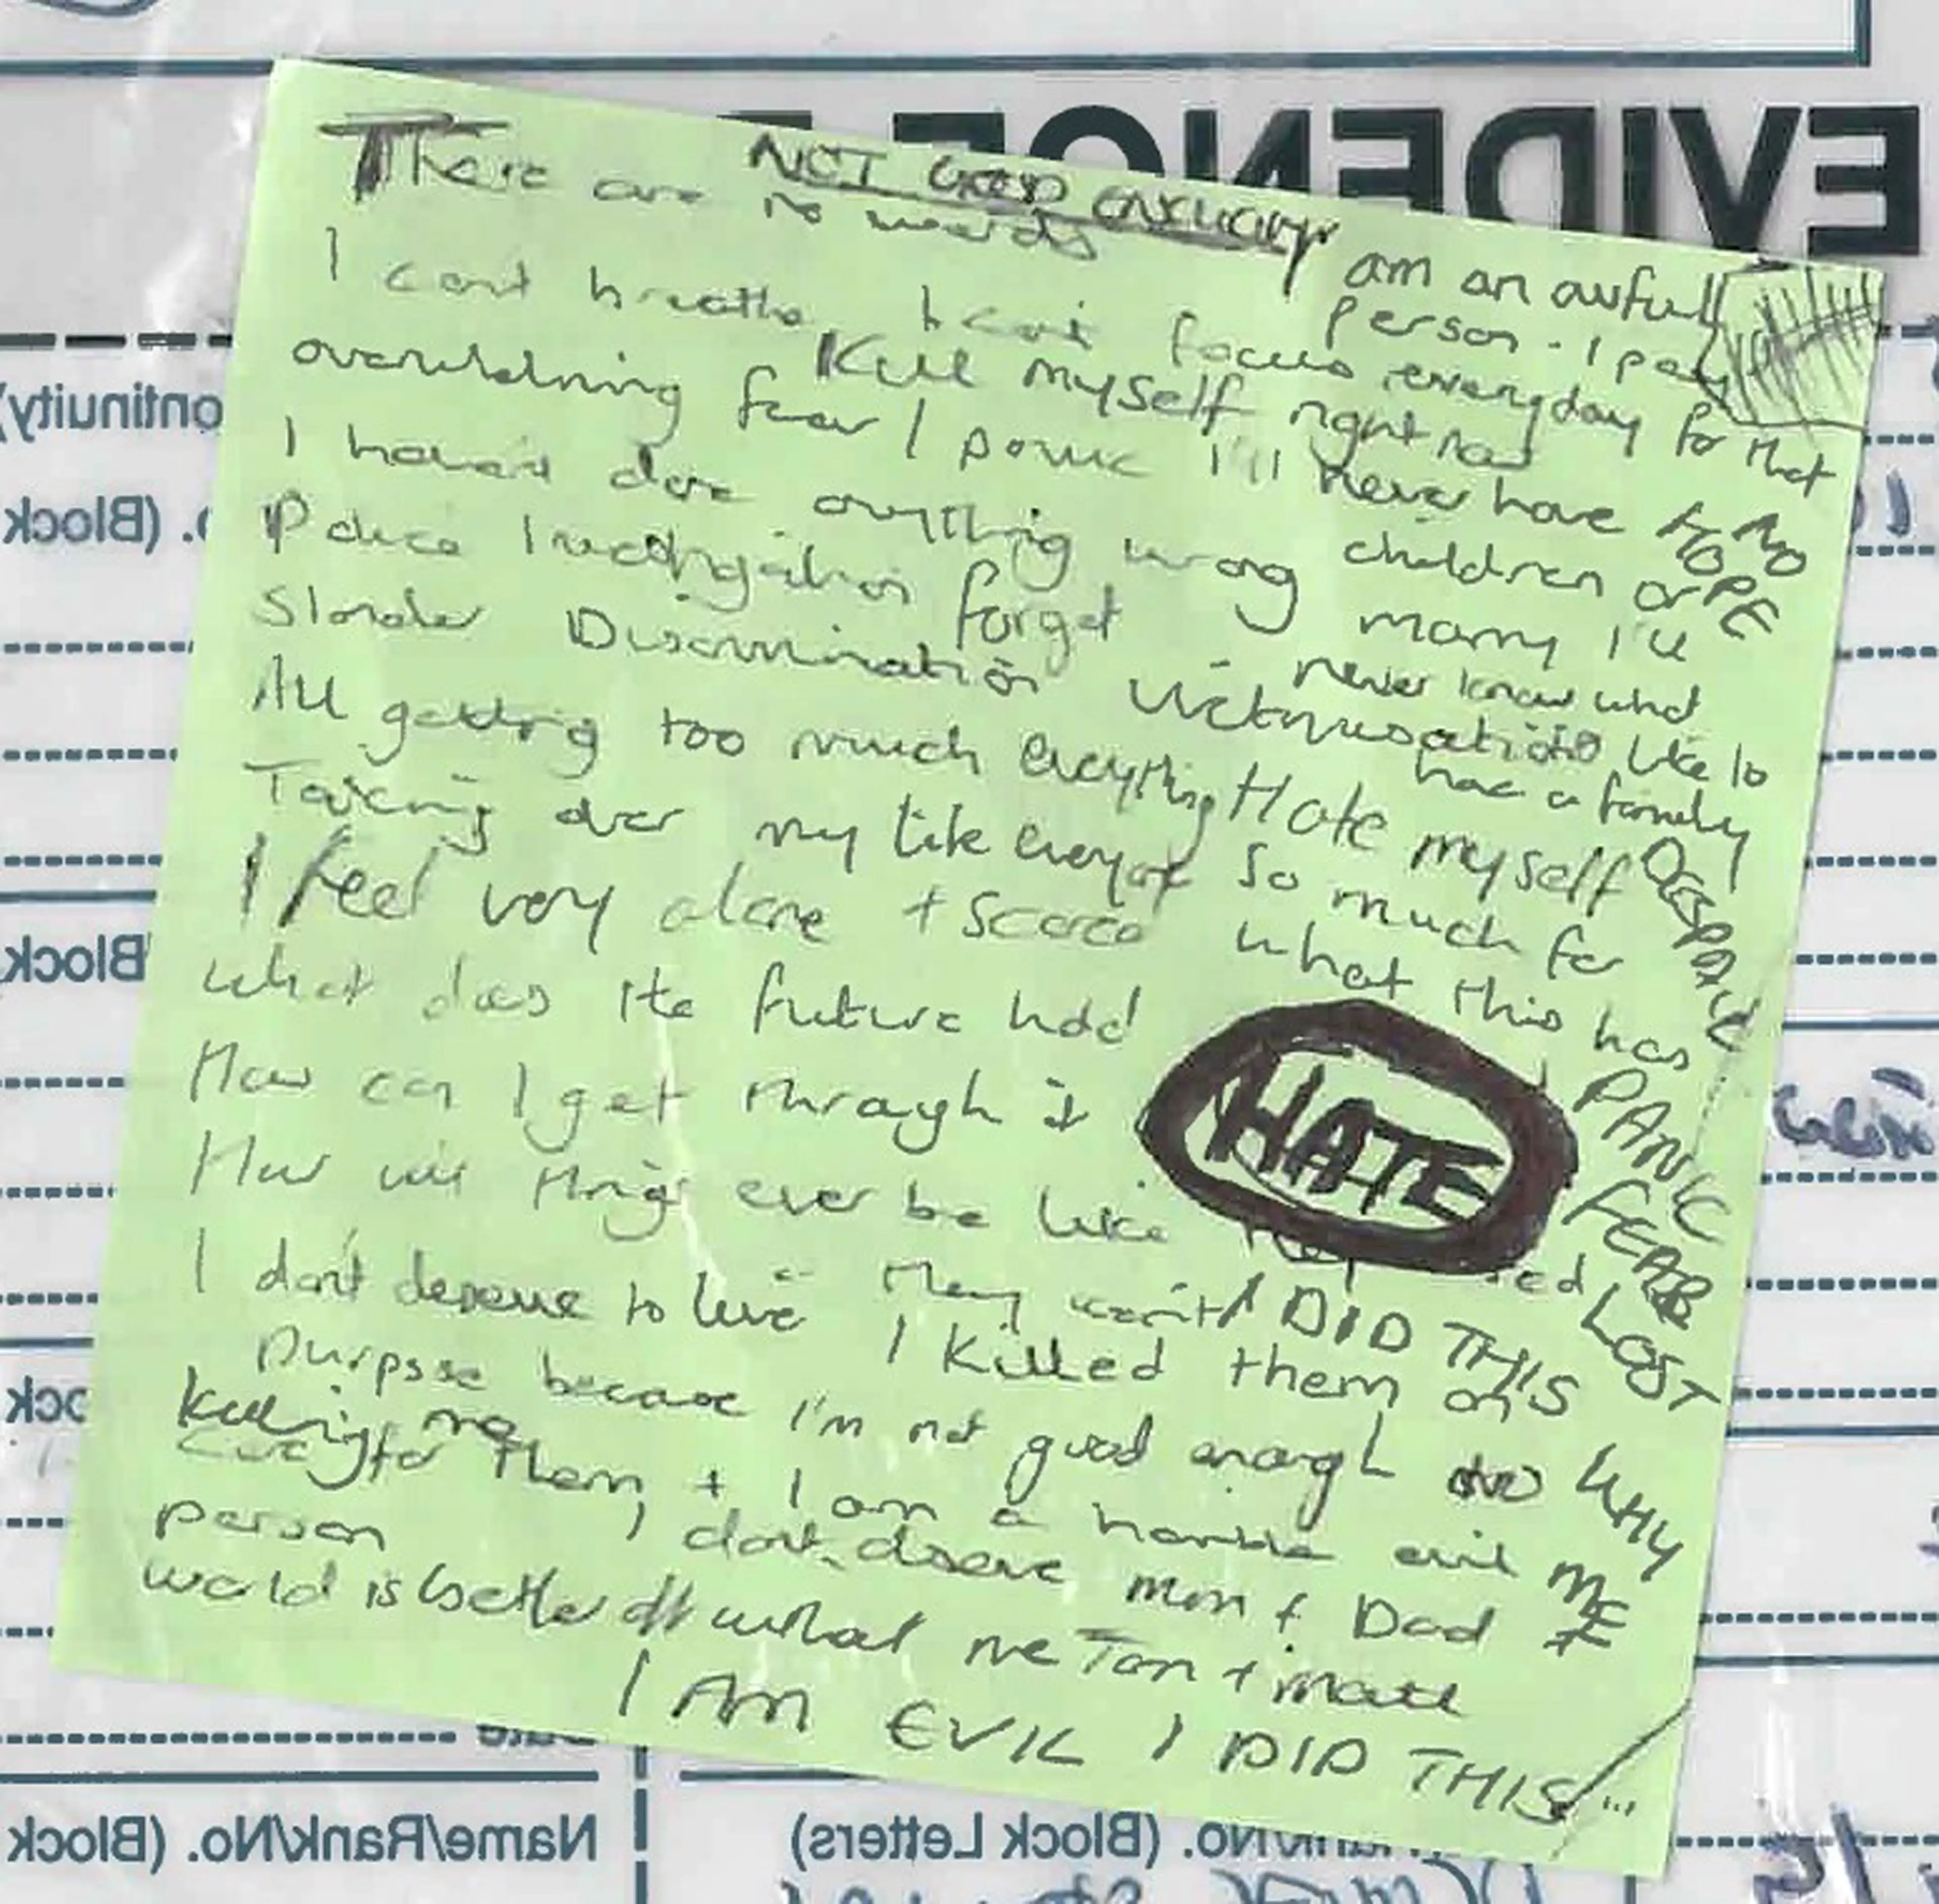 NOT GOOD ENOUGH
There are no words
I am an awful person - I pay everyday for that
I can't breathe I can't focus
Kill myself right now
overwhelming fear / panic
I'll never have children or marry I'll never know what
like to have a family
NO HOPE
I haven't done anything wrong
Police Investigation forget
Slander Discrimination Victimisation
All getting too much everything
Taking over my life everyone
Hate myself so much for what this has
DESPAIR
I feel very alone + scared
What does the future hold
How can I get through it
HATE
PANIC
FEAR
LOST
How will things ever be like they
I don't deserve to live They won't
I DID THIS
I killed them on purpose because I'm not good enough to
care for them + I am a horrible evil person
WHY ME
killing me
I don't deserve mum + Dad
world is better off without me Tom + Matt
I AM EVIL I DID THIS
EVIDENCE
ontinuity)
o. (Block
Block
ock
Date
Name/Rank/No. (Block
No. (Block Letters)